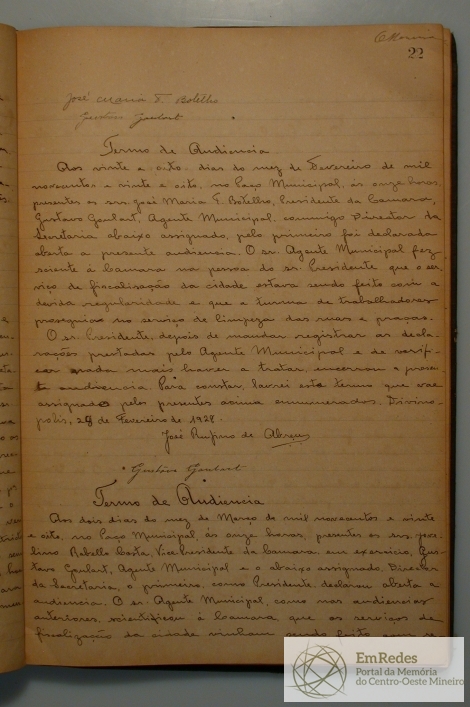 22
José Maria F. Botelho
Gustavo Goulart
Termo de Audiencia
Aos vinte e oito dias do mez de Fevereiro de mil
novecentos e vinte e oito, no Paço Municipal, ás onze horas,
presentes os srs. José Maria F. Botelho, Presidente da Camara,
Gustavo Goulart, Agente Municipal, commigo Director da
Secretaria abaixo assignado, pelo primeiro foi declarada
aberta a presente audiencia. O sr. Agente Municipal fez
sciente á Camara na pessoa do sr. Presidente que o ser
viço de fiscalisação da cidade estava sendo feito com a
devida regularidade e que a turma de trabalhadores
proseguio no serviço de limpeza das ruas e praças.
O sr. Presidente, depois de mandar registrar as decla
rações prestadas pelo Agente Municipal e de verifi
car nada mais haver a tratar, encerrou a presen
te audiencia. Para constar, lavrei este termo que vae
assignado pelos presentes acima enumerados. Divino
polis, 28 de Fevereiro de 1928.
José Rufino de Abreu
Gustavo Goulart
Termo de Audiencia
Aos dois dias do mez de Março de mil novecentos e vinte
e oito, no Paço Municipal, ás onze horas, presentes os srs. Joce
lino Rabello Costa, Vice-Presidente da Camara em exercicio, Gus
tavo Goulart, Agente Municipal e o abaixo assignado, Director
da Secretaria, o primeiro, como Presidente declarou aberta a
audiencia. O sr. Agente Municipal, como nas audiencias
anteriores, scientificou á Camara, que os serviços de
fiscalização da cidade vinham sendo feito
EmRedes
Portal da Memória
do Centro-Oeste Mineiro